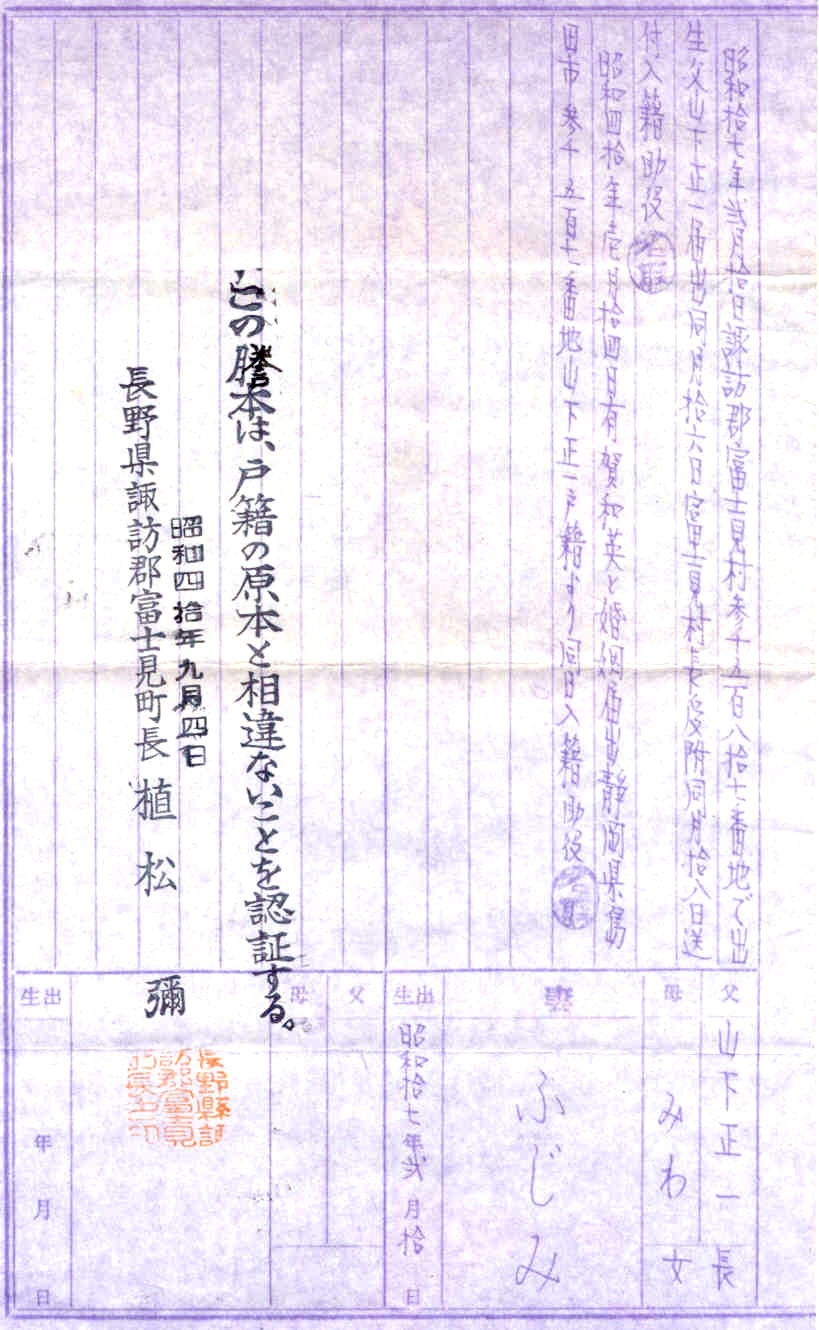 昭和拾七年弐月拾日諏訪郡富士見村参千五百八拾七番地で出
生父山下正一届出同月拾六日富士見村長受附同月拾八日送
付入籍助役
昭和四拾年壱月拾四日有賀和英と婚姻届出静岡県島
田市参千五百七番地山下正一戸籍より同日入籍助役
父
山下正一
長
母
みわ
女
妻
ふじみ
生出
昭和拾七年弐月拾日
父
母
この謄本は、戸籍の原本と相違ないことを認証する。
昭和四拾年九月四日
長野県諏訪郡富士見町長 植松 彌
長野県諏
訪郡富士見
町長之印
生出
年 月 日